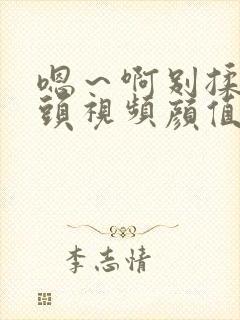 嗯～啊别揉
頭視頻顔值
李志情